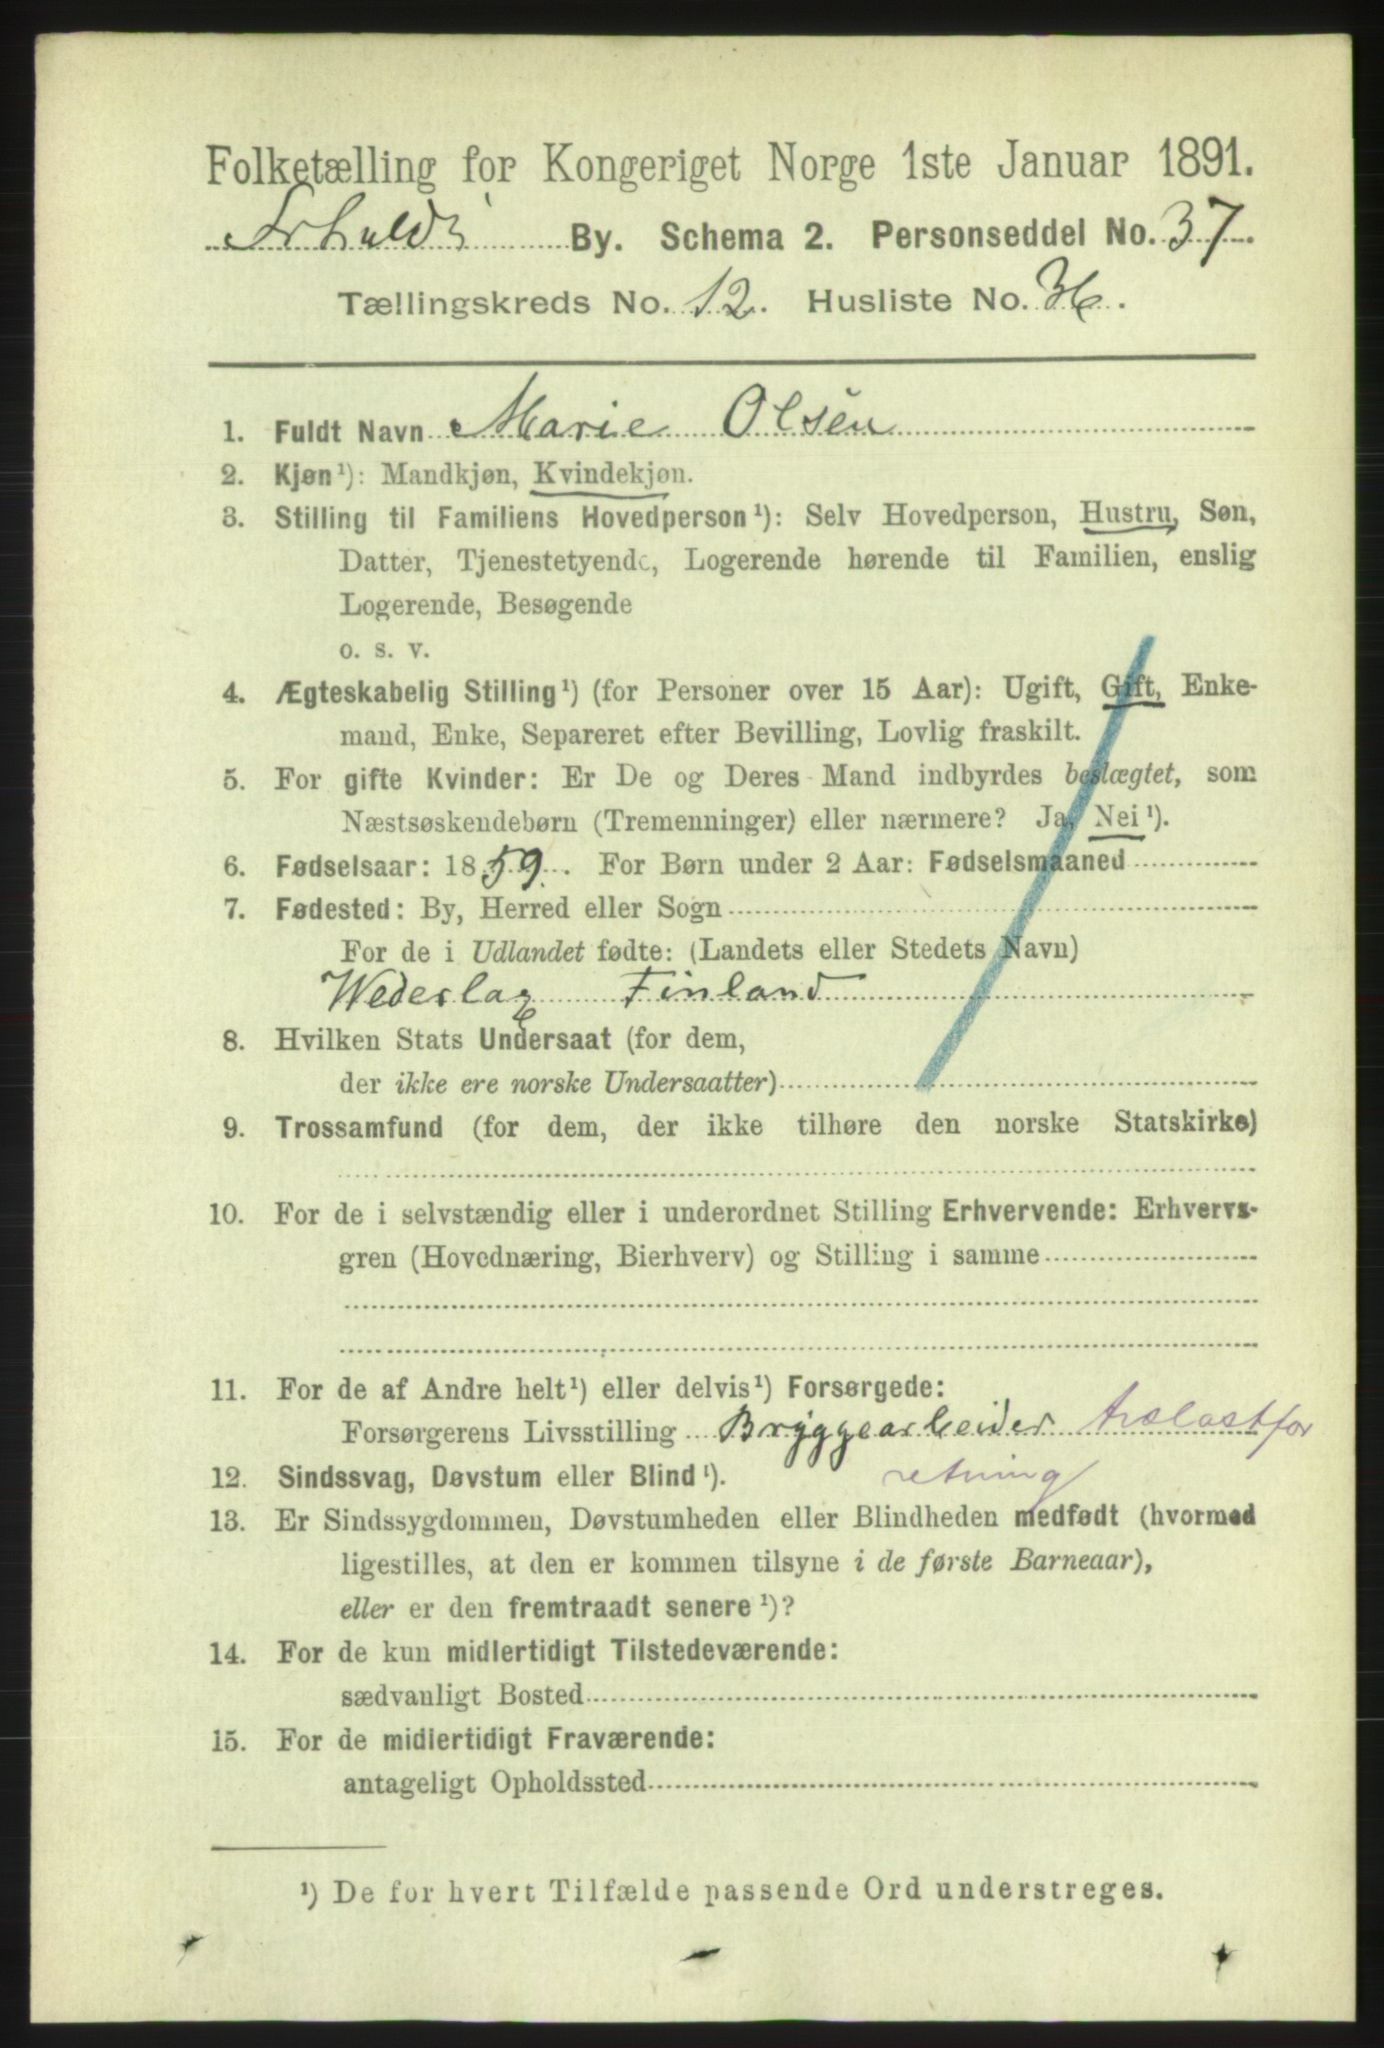 Folketælling for Kongeriget Norge 1ste Januar 1891.
By. Schema 2. Personseddel No. 37
Tællingskreds No. 12. Husliste No. 36.
1. Fuldt Navn Marie Olsen
2. Kjøn¹): Mandkjøn, Kvindekjøn.
3. Stilling til Familiens Hovedperson¹): Selv Hovedperson, Hustru, Søn,
Datter, Tjenestetyende, Logerende hørende til Familien, enslig
Logerende, Besøgende
o. s. v.
4. Ægteskabelig Stilling¹) (for Personer over 15 Aar): Ugift, Gift, Enke-
mand, Enke, Separeret efter Bevilling, Lovlig fraskilt.
5. For gifte Kvinder: Er De og Deres Mand indbyrdes beslægtet, som
Næstsøskendebørn (Tremenninger) eller nærmere? Ja, Nei¹).
6. Fødselsaar: 1859. For Børn under 2 Aar: Fødselsmaaned
7. Fødested: By, Herred eller Sogn
For de i Udlandet fødte: (Landets eller Stedets Navn)
Wederlag Finland
8. Hvilken Stats Undersaat (for dem,
der ikke ere norske Undersaatter)
9. Trossamfund (for dem, der ikke tilhøre den norske Statskirke)
10. For de i selvstændig eller i underordnet Stilling Erhvervende: Erhvervs-
gren (Hovednæring, Bierhverv) og Stilling i samme
11. For de af Andre helt¹) eller delvis¹) Forsørgede:
Forsørgerens Livsstilling Bryggearbeider trælastfor
retning
12. Sindssvag, Døvstum eller Blind¹).
13. Er Sindssygdommen, Døvstumheden eller Blindheden medfødt (hvormed
ligestilles, at den er kommen tilsyne i de første Barneaar),
eller er den fremtraadt senere¹)?
14. For de kun midlertidigt Tilstedeværende:
sædvanligt Bosted
15. For de midlertidigt Fraværende:
antageligt Opholdssted
¹) De for hvert Tilfælde passende Ord understreges.